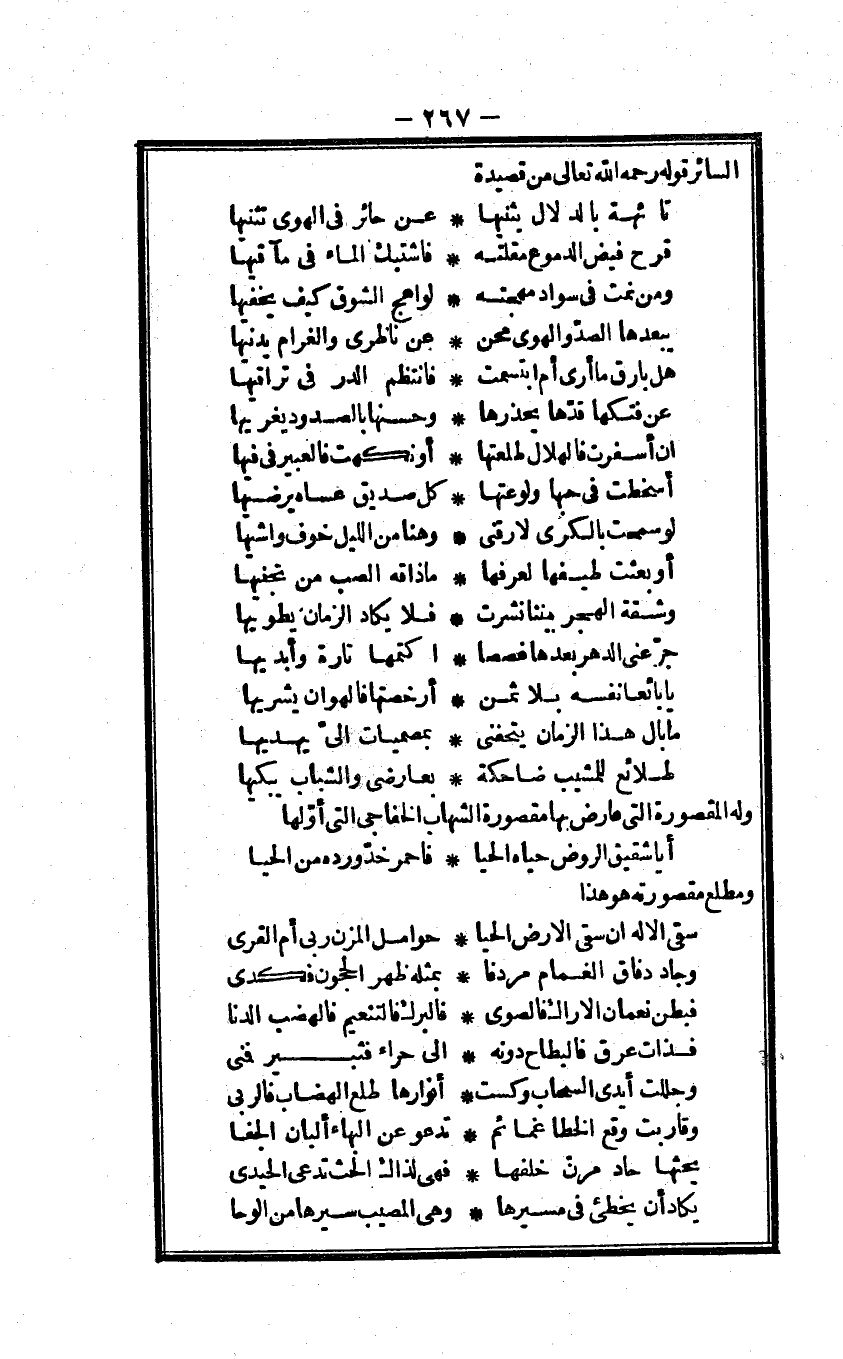 — ٢٦٧ —
السائر قوله رحمه الله تعالى من قصيدة
تائهة بالدلال يثنيها * عن حائر فى الهوى تثنيها
قرح فيض الدموع مقلته * فاشتبك الماء فى مآقيها
ومن نمت فى سواد مهجته * لواهج الشوق كيف يخفيها
يبعدها الصدّ والهوى محن * عن ناظرى والغرام يدنيها
هل بارق ما أرى أم ابتسمت * فانتظم الدر فى تراقيها
عن فتكها قدّها يحذرها * وحسنها بالصدود يغريها
ان أسفرت فالهلال طلعتها * أو نكهت فالعبير فى فيها
أسخطت فى حبها ولوعتها * كل صديق عساه يرضيها
لو سمعت بالكرى لارقنى * وهنا من الليل خوف واشيها
أو بعثت طيفها لعرفها * ماذاقه الصب من تجفيها
وشقة الهجر بيننا نشرت * فلا يكاد الزمان يطويها
جرّعنى الدهر بعدها غصصا * اكتمها تارة وأبديها
يا بائعا نفسه بلا ثمن * أرخصتها فالهوان يشريها
مابال هذا الزمان يتحفنى * بمصميات الىّ يهديها
طلائع للمشيب ضاحكة * بعارضى والشباب يبكيها
وله المقصورة التى عارض بها مقصورة الشهاب الخفاجى التى أوّلها
أيا شقيق الروض حياه الحيا * فاحمر خدّ ورده من الحيا
ومطلع مقصورته هو هذا
سقى الاله ان سقى الارض الحيا * حوامل المزن ربى أم القرى
وجاد دفاق الغمام مردفا * بمثله ظهر الحجون فكدى
فبطن نعمان الاراك فالصوى * فالبرك فالتنعيم فالهضب الدنا
فذات عرق فالبطاح دونه * الى حراء فثبير فنى
وحللت أيدى السحاب وكست * أنوارها طلع الهضاب فالربى
وقاربت وقع الخطا غمائم * تدعو عن الهاء ألبان الجفا
يحثها حاد مرنّ خلفها * فهى لذاك الحث تدعى الحيدى
يكاد أن يخطئ فى مسيرها * وهى المصيب سيرها من الوحا